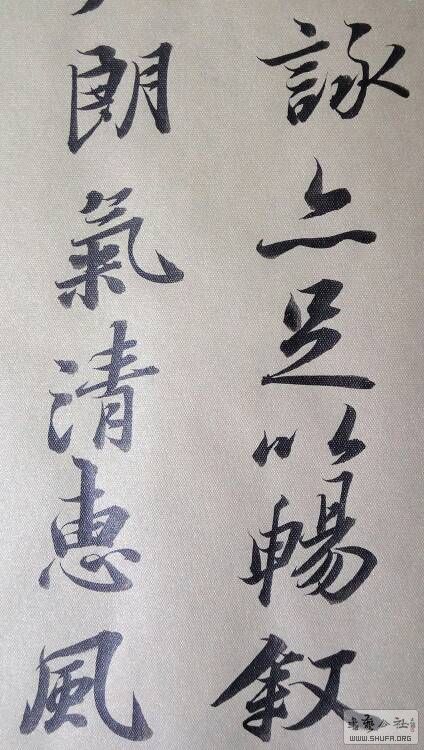 詠亦足以暢叙
朗氣清惠風
書法公社
WWW.SHUFA.ORG